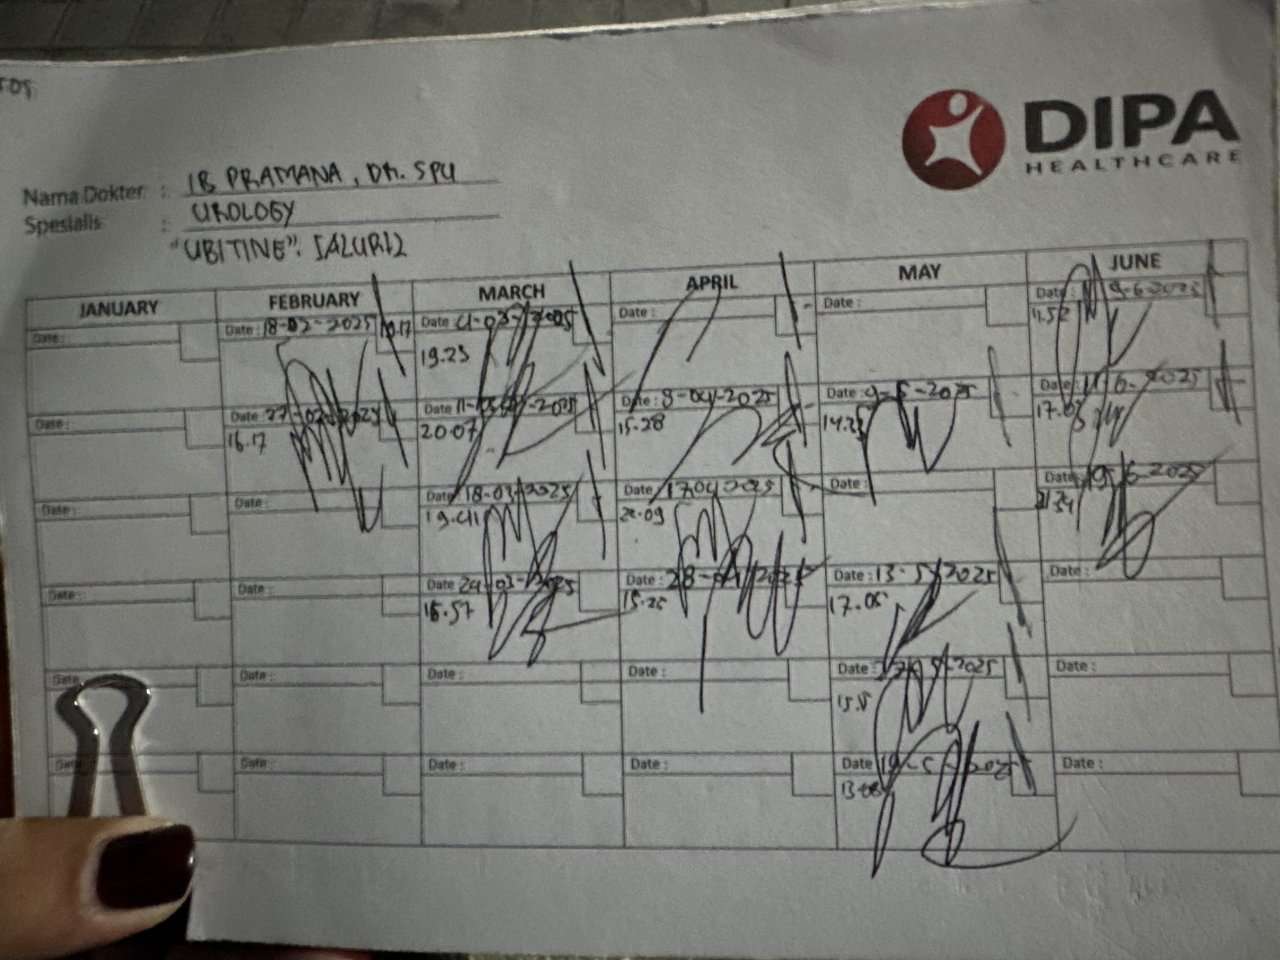 DIPA
HEALTHCARE
Nama Dokter : IB PRAMANA, Dr. SPU
Spesialis : UROLOGY
"UBITINE".
JANUARY FEBRUARY MARCH APRIL MAY JUNE
Date : Date : 18-02-2025 Date Date : Date : Date : 9-6-2025
19.23
Date : Date : 27-02-2025 Date 11-03-2025 Date : 8-04-2025 Date : 9-5-2025 Date : 11-6-2025
16.17 20.07 15.28 17.03
Date : Date : Date 18-03-2025 Date 17 04 2025 Date : Date 19-6-2025
19.41
Date : Date : Date 24-03-2025 Date : 28-04-2025 Date : 13-5-2025 Date :
16.57 17.05
Date : Date : Date : Date : Date : Date :
Date : Date : Date : Date : Date 19-5-2025 Date :